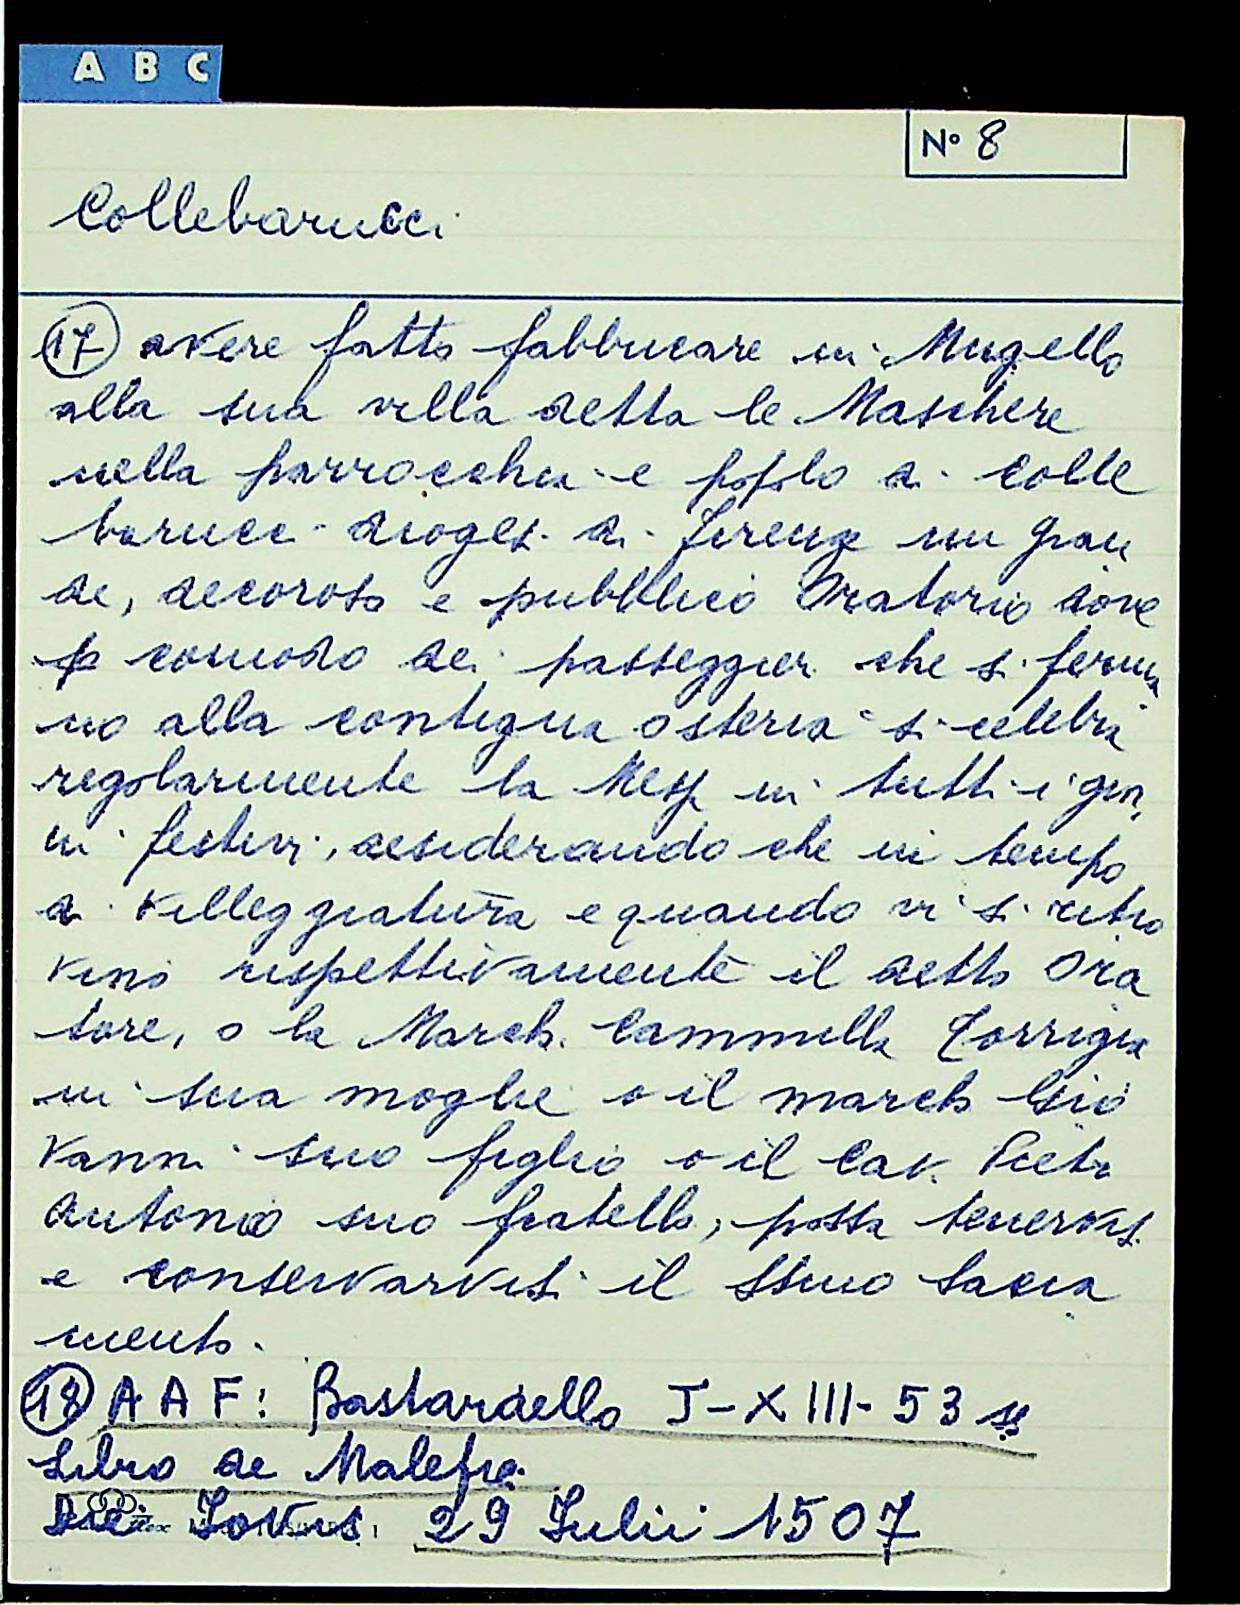 A B C
N° 8
Collebarucci
17 avere fatto fabbricare in Mugello
alla sua villa detta le Maschere
nella parrocchia e popolo di Colle
barucci dioges. di Firenze un gran
de, decoroso e pubblico Oratorio dove
p comodo dei passeggier che si ferma
no alla contigua osteria si celebri
regolarmente la Messa in tutti i gior
ni festivi, desiderando che in tempo
di villeggiatura e quando vi si ritro
vino rispettivamente il detto Ora
tore, o la March. Cammilla Corrigia
ni sua moglie o il march Gio
vanni suo figlio o il Cav. Pietr
Antonio suo fratello, possa tenervisi
e conservarvisi il SSmo Sacra
mento.
18 A A F: Bastardello J-XIII-53
Libro de Malefici
Die Jovis 29 Julii 1507